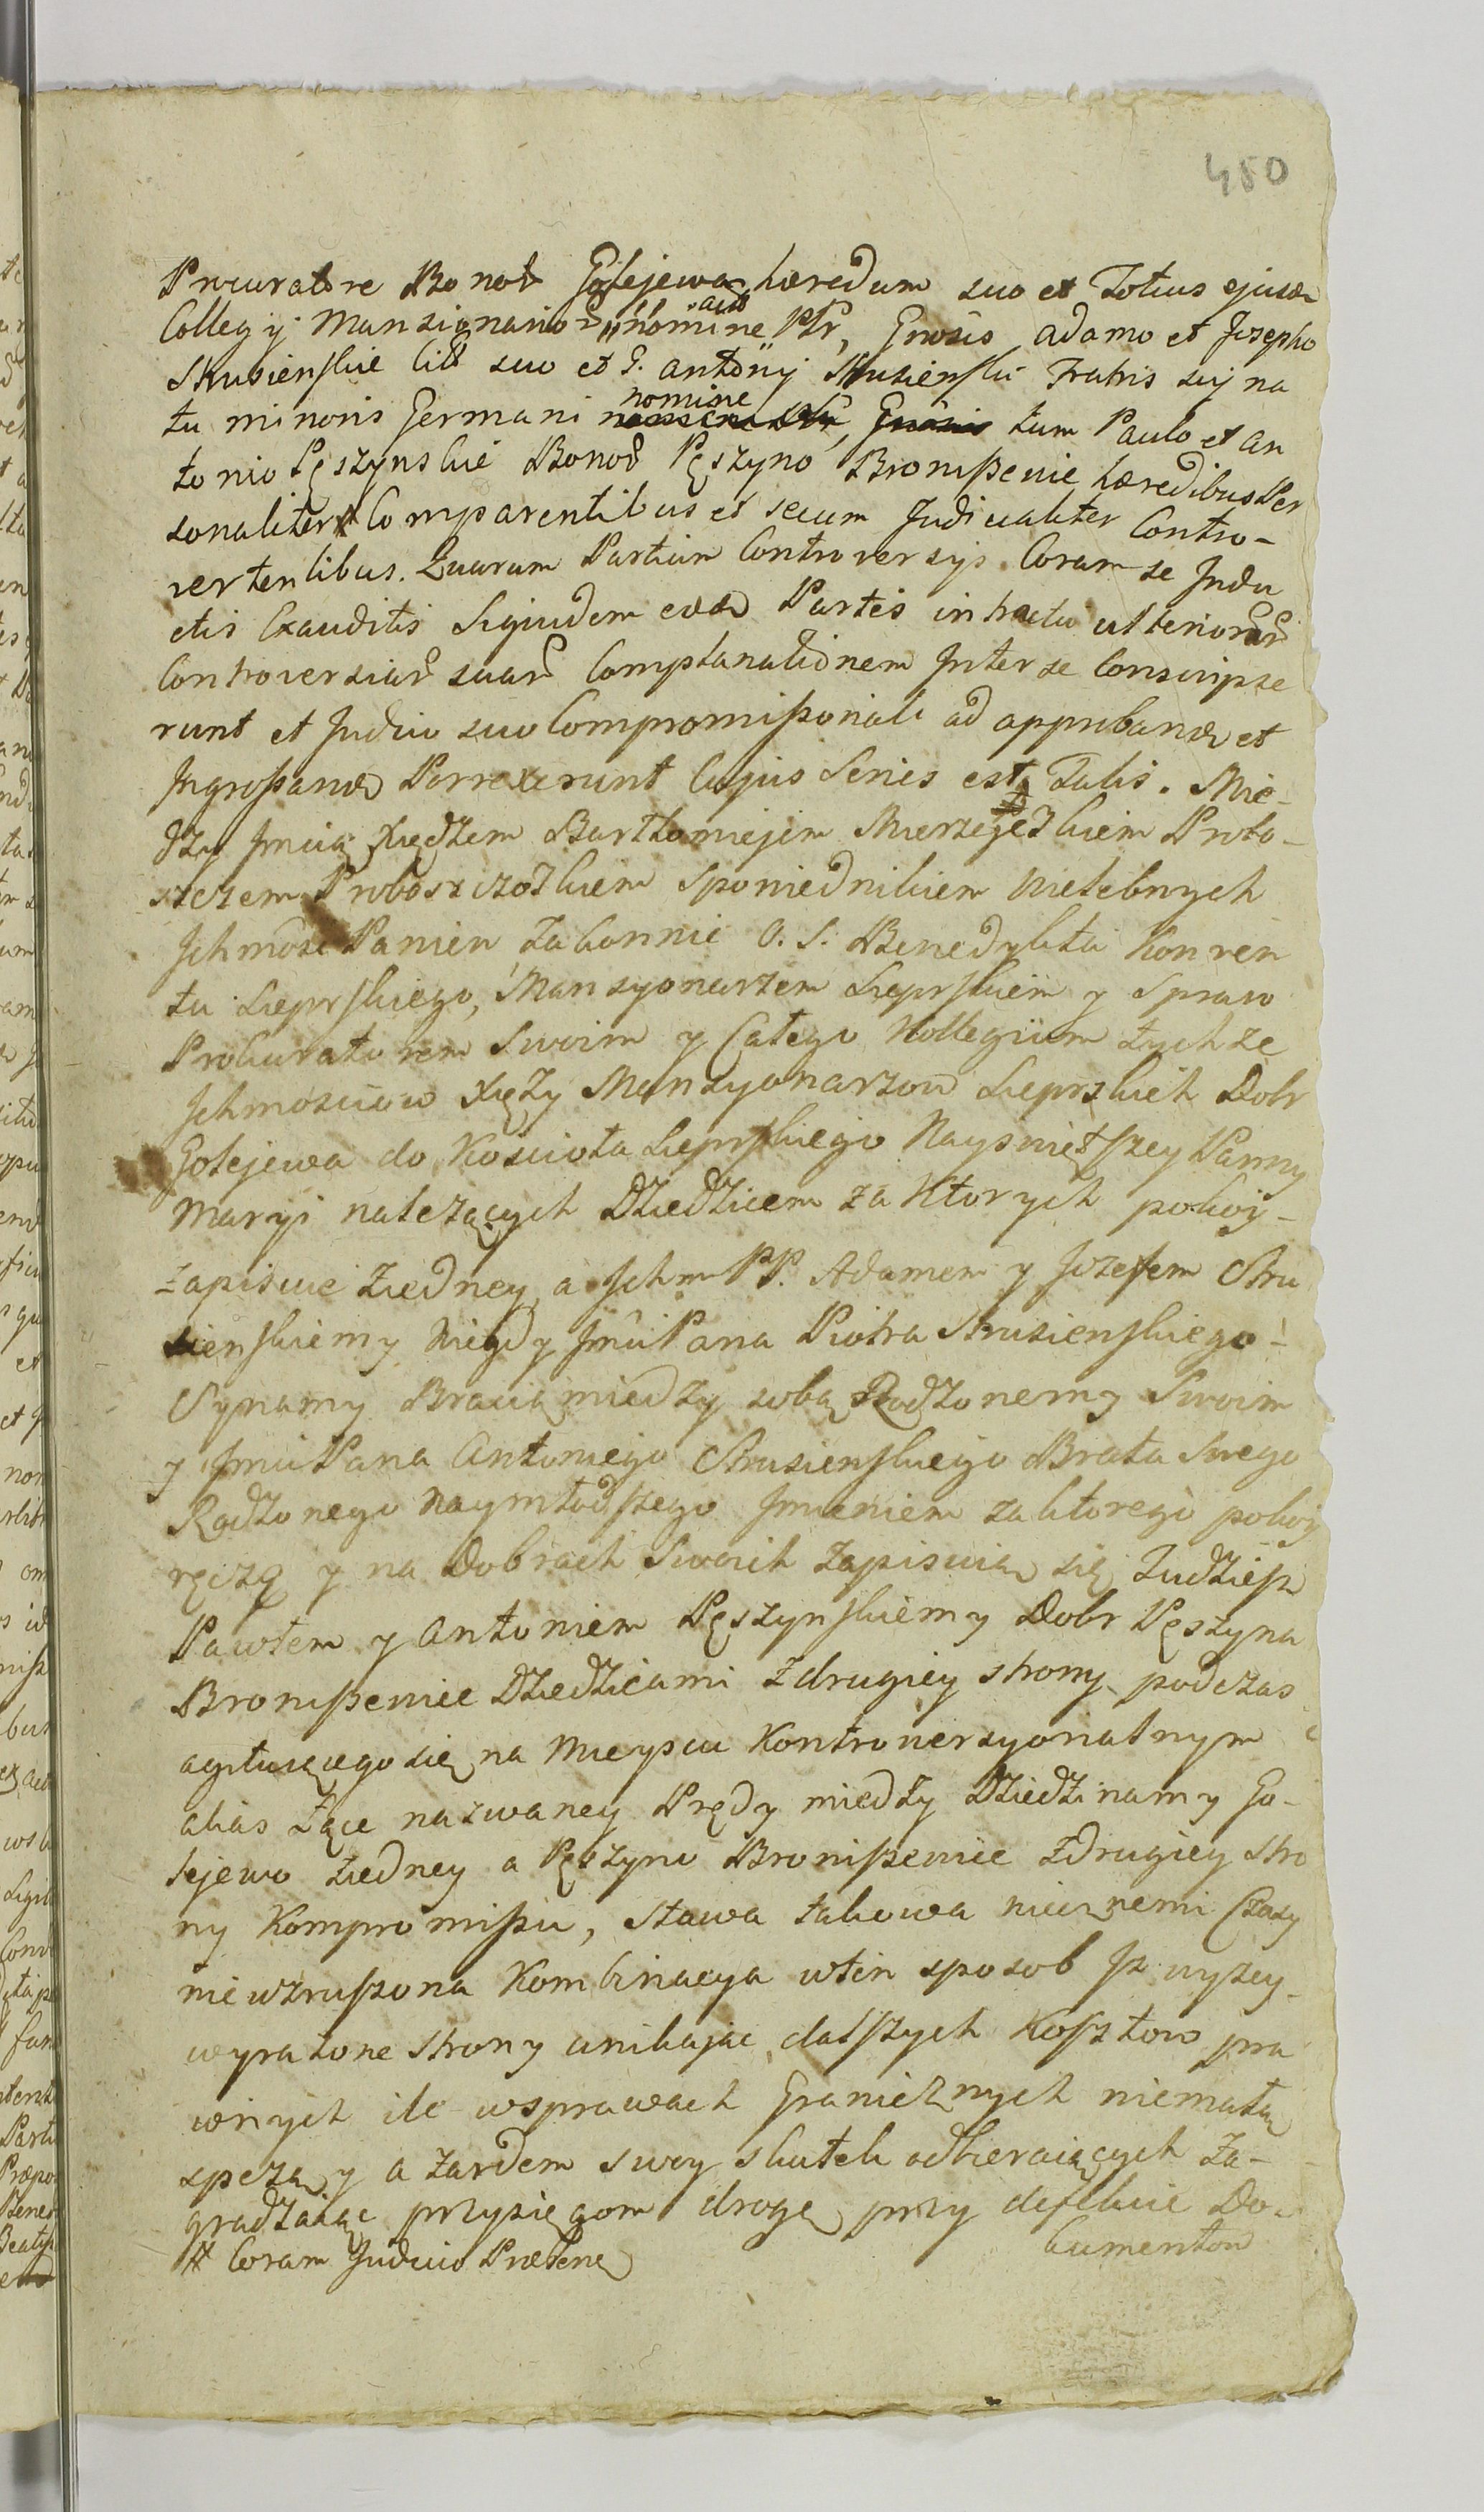 480
Procuratore Bonor Golejewa hæredum suo et Totius ejusd
Collegij Mansionarior nomine act Ptr, Gnosis Adamo et Josepho
Strusienskie suo et G. Antonij Strusienski Fratris suj na
tu minoris Germani nomine tum Paulo et An
tonio Pęszynskie Bonor Pęszyno Bronißenie hæredibus Per
sonaliter # Comparentibus et secum Judicialiter Contro-
vertentibus. Quarum Partium Controversijs Coram se Indu
ctis Exauditis Siquidem eæd Partes in tractu ulterior
Controversiar suar Complanationem Inter se Conscripse
runt et Judicio suo Compromißionali ad approband et
Ingroßand Porrexerunt Cujus Series est Talis. Mie-
dzy Jmcią Xiędzem Bartłomiejem Probo-
szczem Proboszczozkiem Spowiednikiem Wielebnych
Jchmośc Panien Zakonnic O. S. Benedykta Konwen
tu Sieprskiego, Mansyonarzem Sieprskiem y Spraw
Prokuratorem Swoim y Całego Kollegium tychze
Jchmosciow Xięży Mansyonarzow Sieprskich Dobr
Golejewa do Kosciola Sieprskiego Nayswiętszey Panny
Maryi należących Dziedzicem za Ktorych pokoy-
zapisuie ziedney a Jchm PP. Adamem y Jozefem Stru
sienskiemy Niegdy Jmci Pana Piotra Strusienskiego-
Synamy Bracią miedzy sobą Rodzonemy Swoim
y Jmci Pana Antoniego Strusienskiego Brata Swego
Rodzonego naymłodszego Jmieniem za ktorego pokoy
ręczą y na Dobrach Swoich zapisuią się Tudziesz
Pawłem y Antoniem Pęszynskiemy Dobr Pęszyna
Bronißewice Dziedzicami z drugiey strony podczas
agituiącego się na Mieyscu Kontrowersyonalnym
alias Łące nazwaney Prędy miedzy Dziedzinamy Go-
lejewo ziedney a Pęszyno Bronißewice zdrugiey stro
ny Kompromißu, stawa takowa wiecznemi Czasy
niewzrußona Kombinacya wten sposob Jz wyzey
wyrażone strony unikaiąc dalszych Kosztow pra
wnych ile wsprawach Granicznych niemałą
spezą y a zardem swoy skutek odbieraiących za-
gradzaiąc przysięgom drogę przy defekcie Do-
kumentow
# Coram Judicio Præsenti